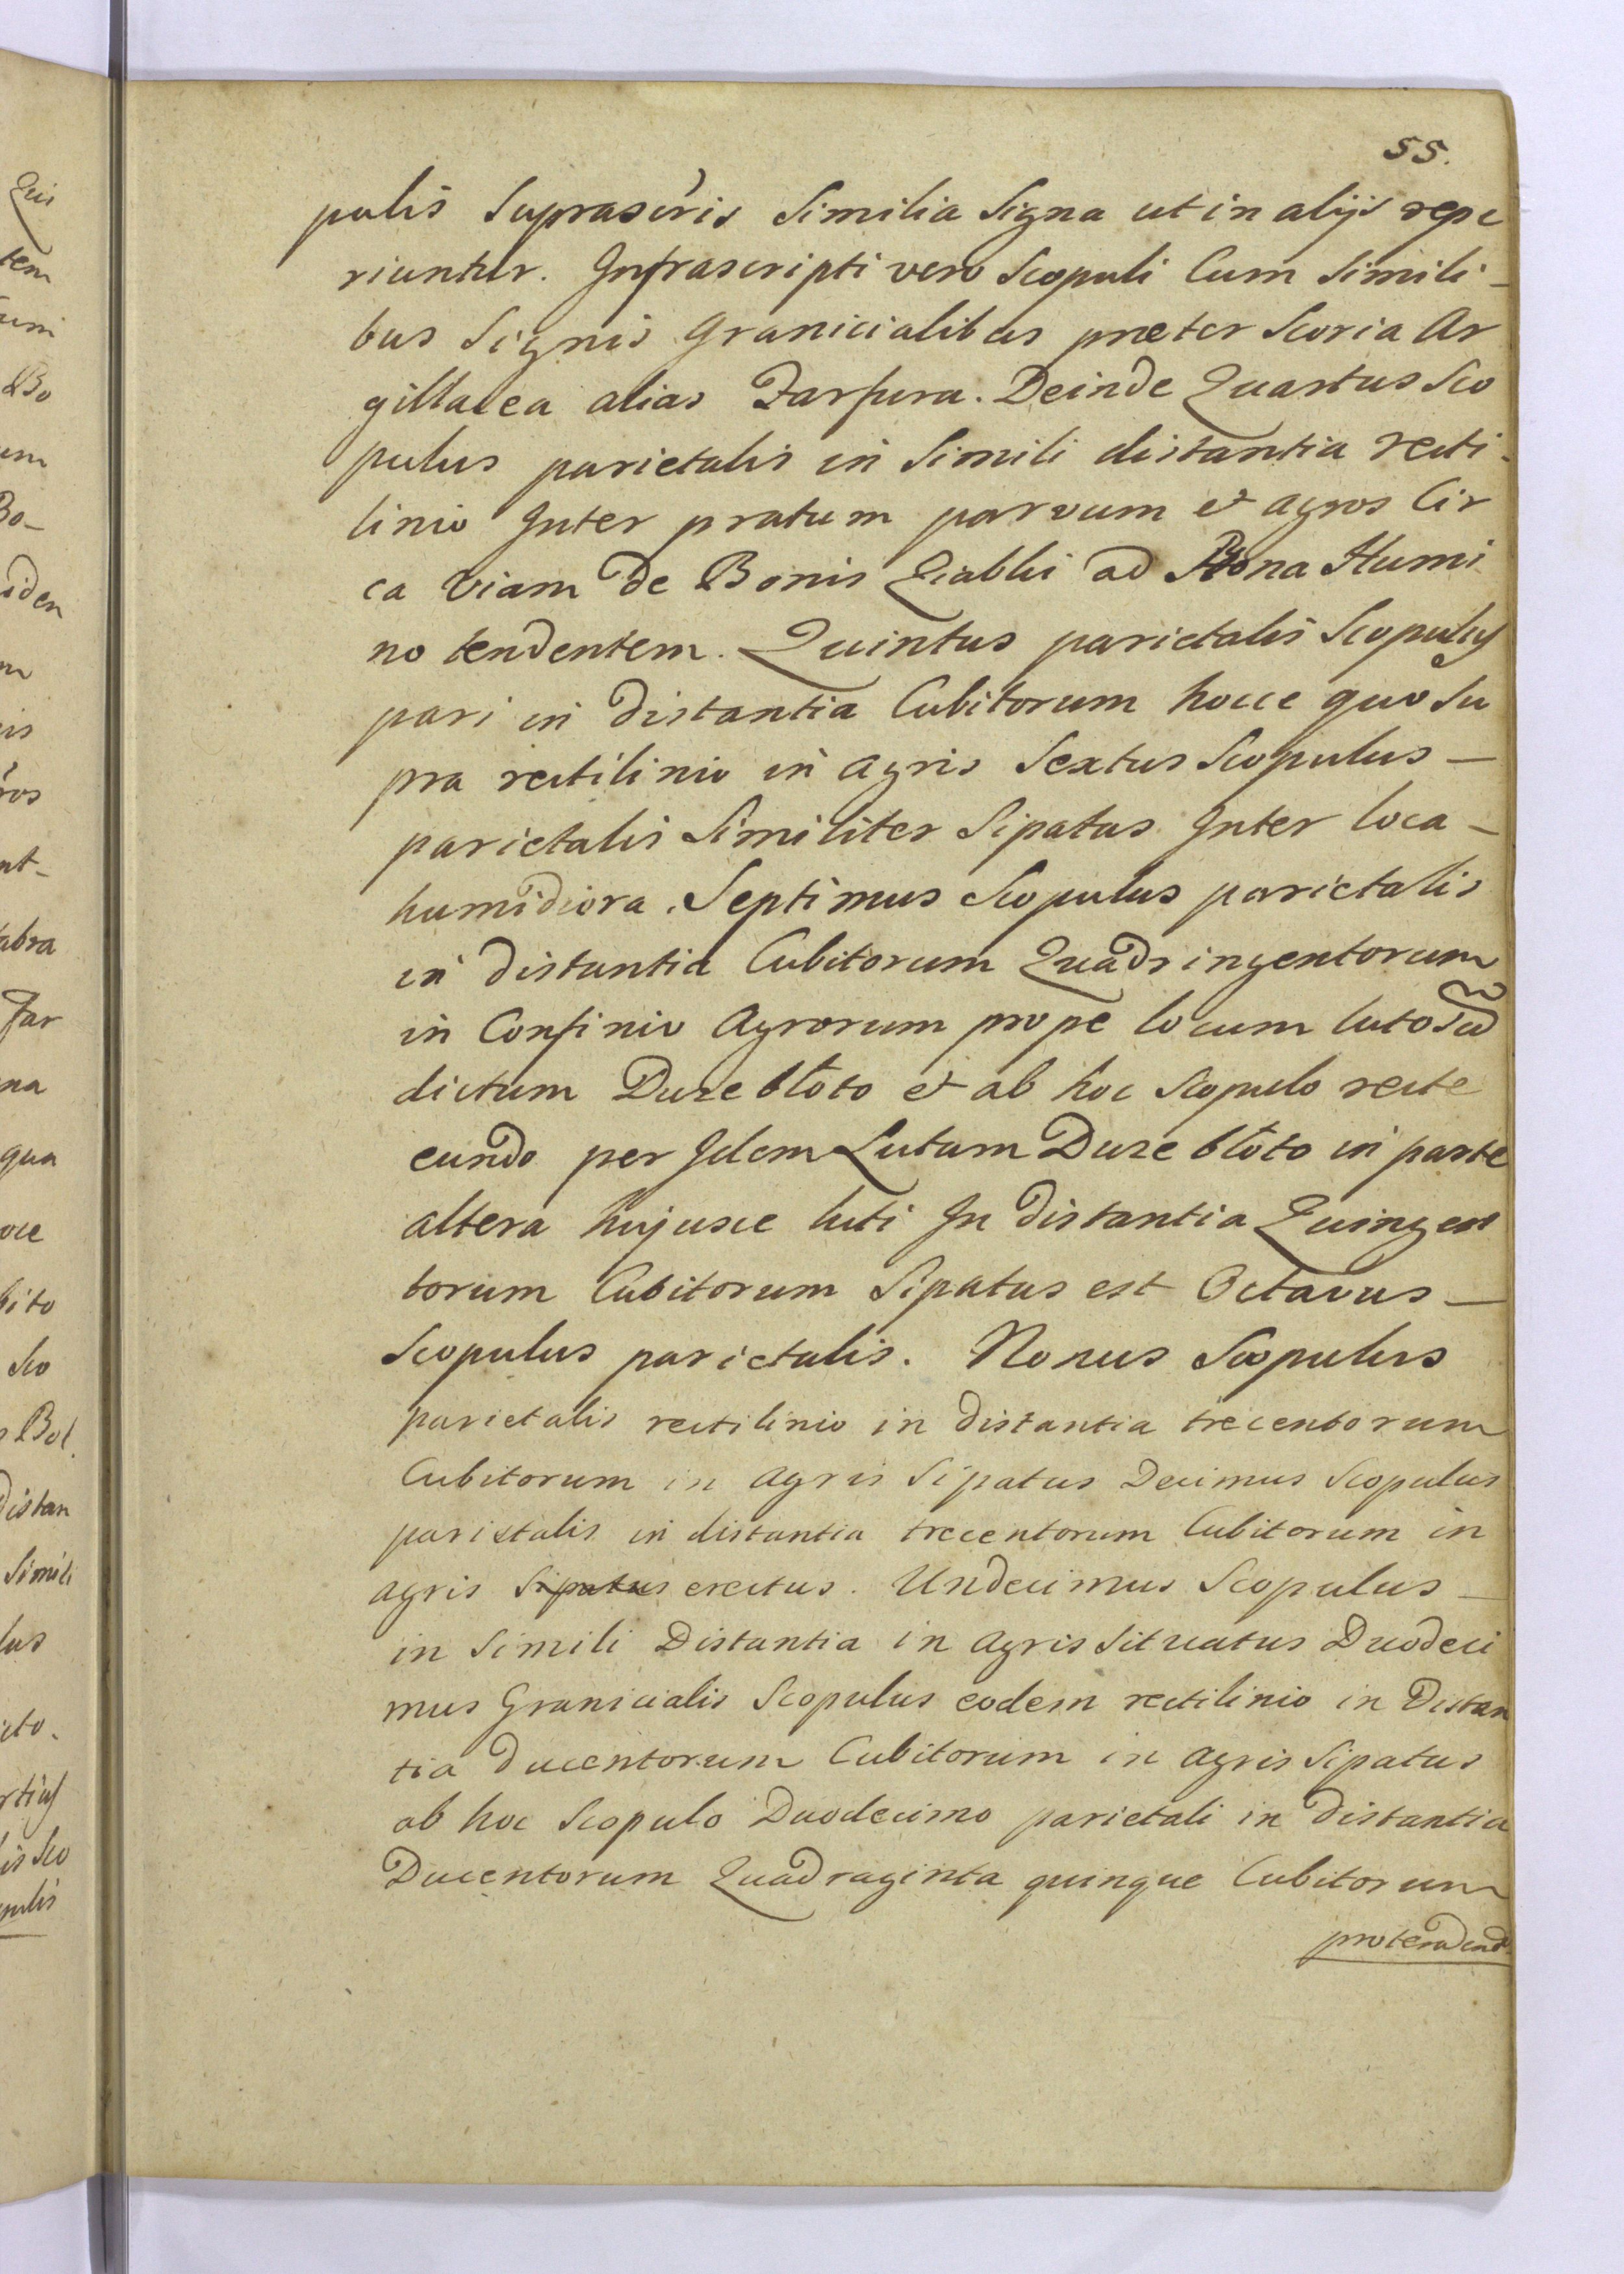 55.
pulis suprascris similia signa ut in alijs repe
riuntur. Infrascripti vero scopuli Cum simili-
bus signis Granicialibus præter scoria Ar
gillacea alias Farfura. Deinde Quartus Sco
pulus parietalis in simili distantia recti-
linio Inter pratum parvum et agros Cir
ca viam de Bonis Qiablii ad Bona Humi
no tendentem. Quintus parietalis Scopulus
pari in distantia Cubitorum hocce quo su
pra rectilinio in agris Sextus Scopulus -
parietalis similiter sipatus Inter loca -
humidiora. Septimus Scopulus parietalis
in distantia Cubitorum Quadringentorum
in Confinio Agrorum prope locum lutosũ
dictum Duze błoto et ab hoc Scopulo recte
eundo per Idem Lutum Duze błoto in parte
altera hujusce luti In distantia Quingen
torum Cubitorum Sipatus est Octavus -
Scopulus parietalis. Nonus Scopulus
parietalis rectilinio in distantia trecentorum
Cubitorum in agris Sipatus Decimus Scopulus
parietalis in distantia trecentorum Cubitorum in
agris Sipatus erectus. Undecimus Scopulus -
in simili Distantia in agris situatus Duodeci
mus Granicialis Scopulus eodem rectilinio in Distan
tia ducentorum Cubitorum in agris Sipatus
ab hoc Scopulo Duodecimo parietali in distantia
Ducentorum Quadraginta quinque Cubitorum
protendend